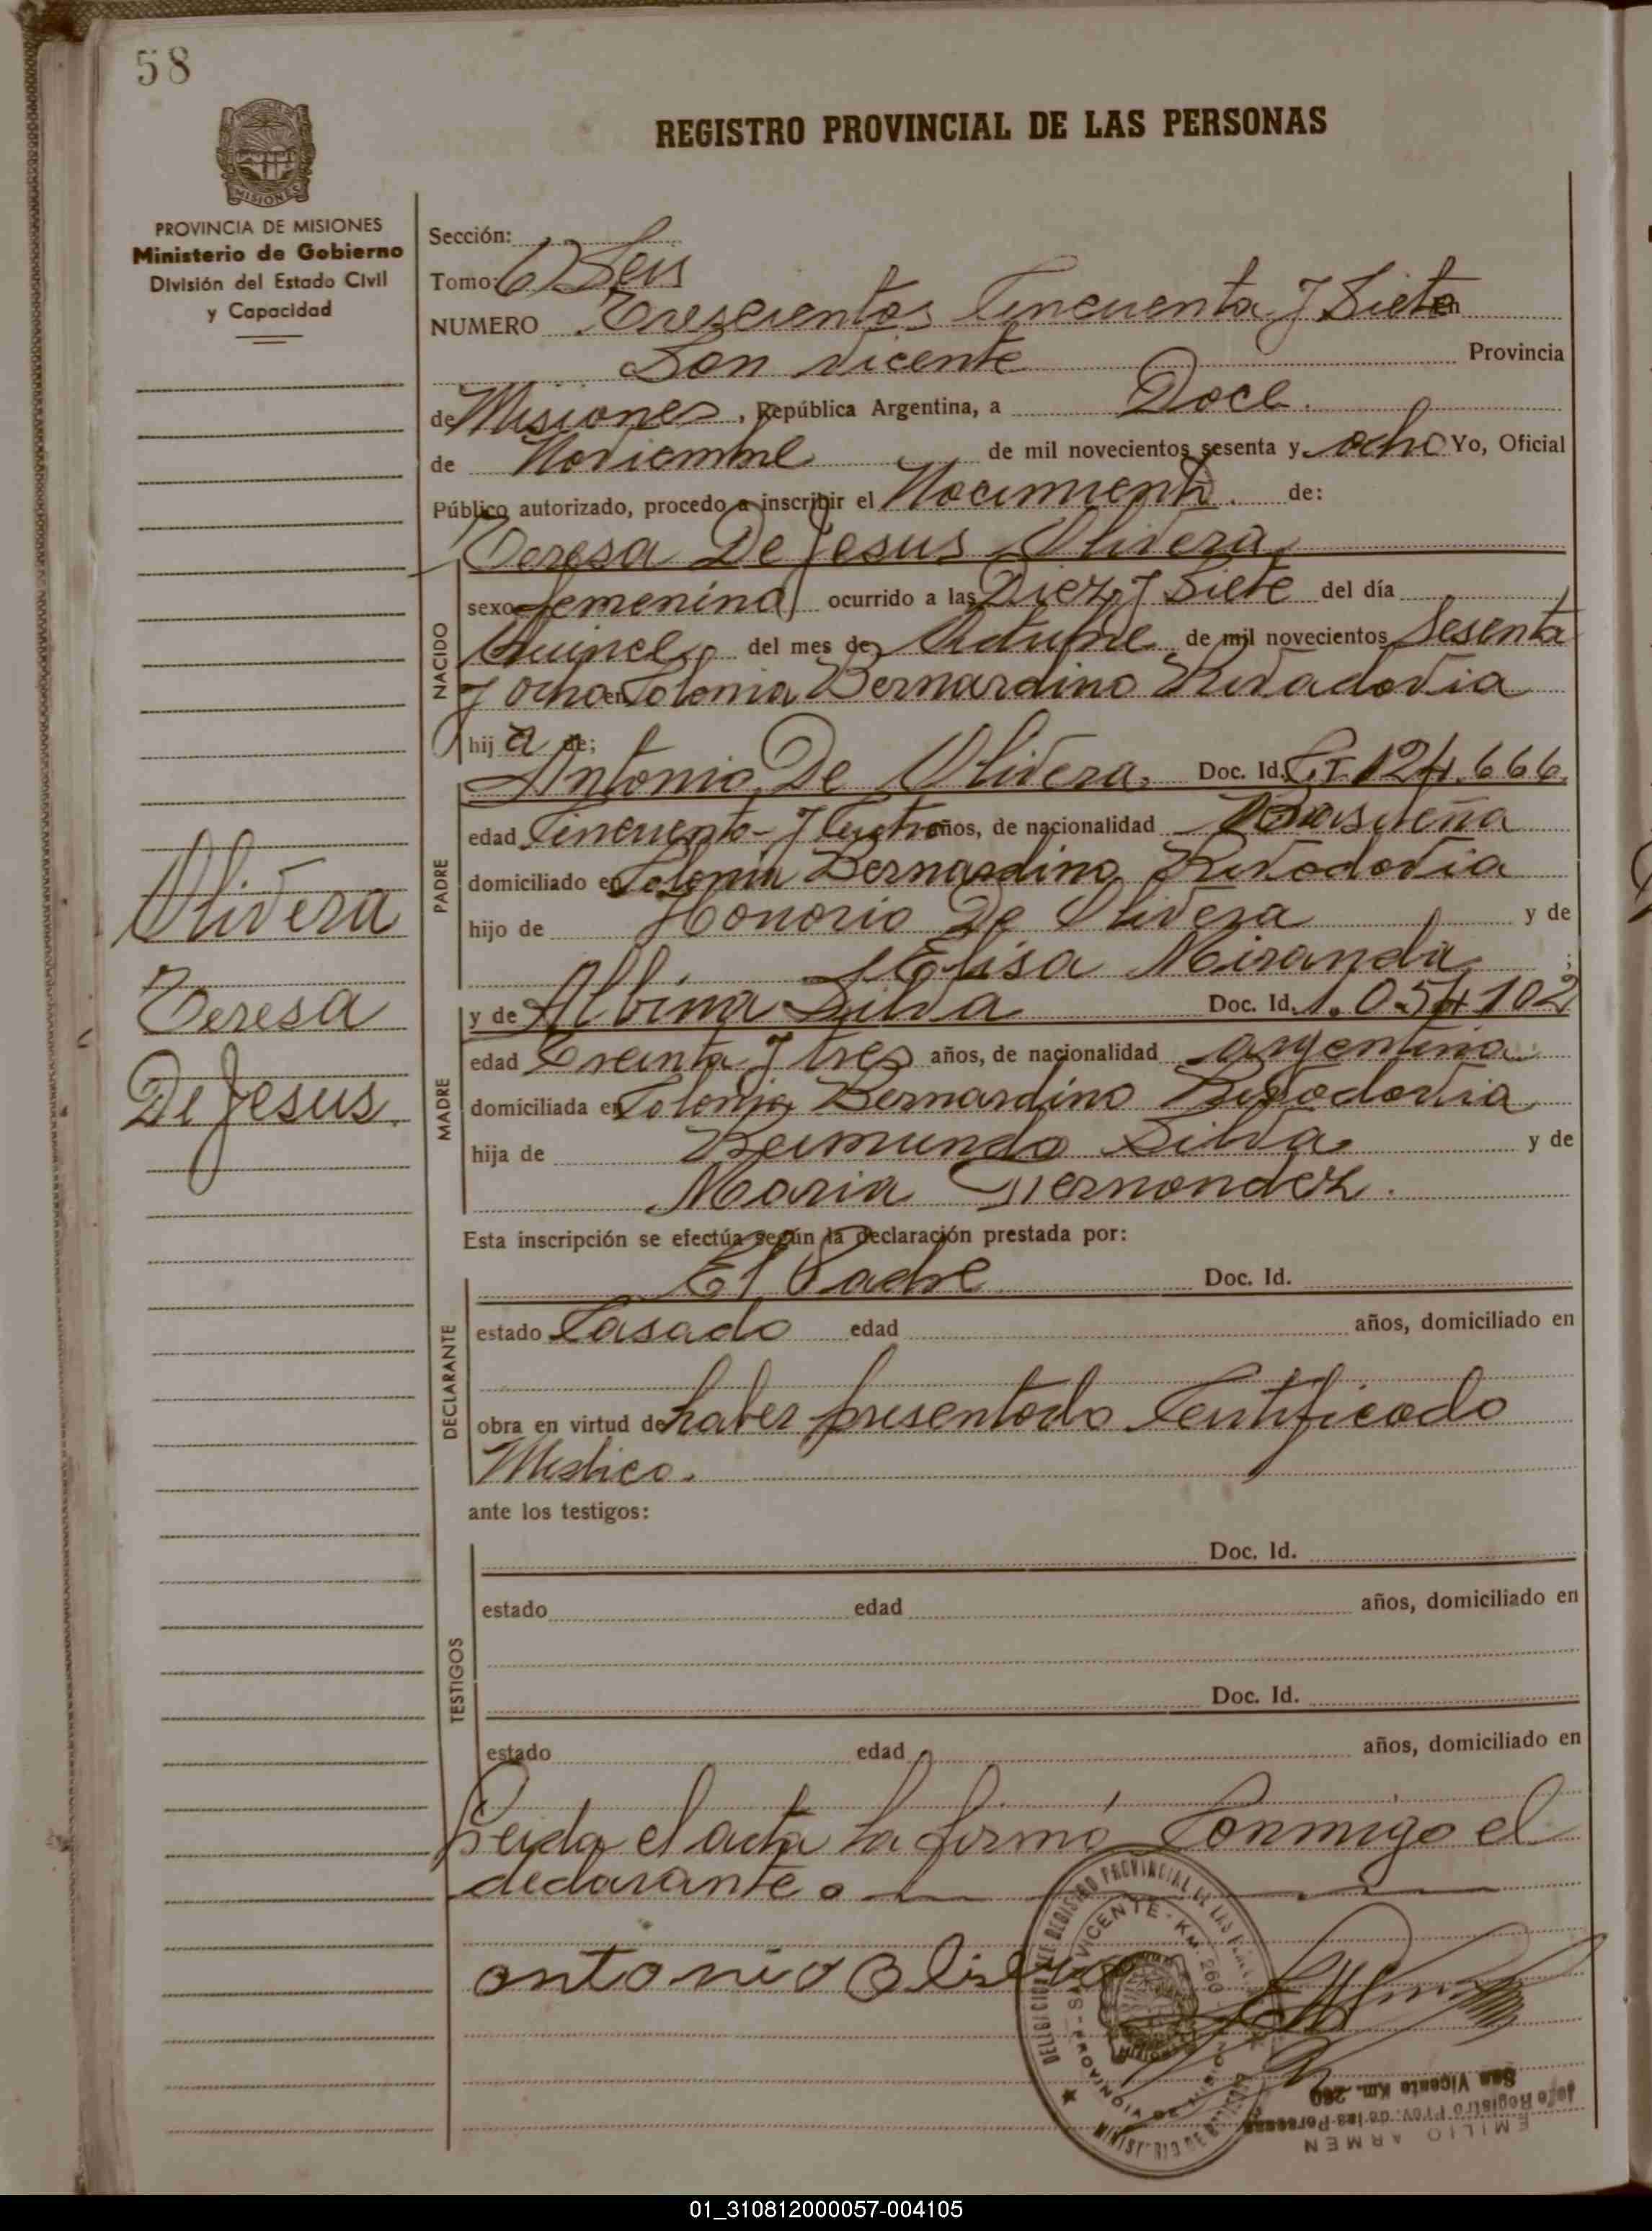 58
REGISTRO PROVINCIAL DE LAS PERSONAS
MISIONES
PROVINCIA DE MISIONES
Ministerio de Gobierno
División del Estado Civil
y Capacidad
Sección:
Tomo: 6) Seis
NUMERO Trescientos Cincuenta y Siete En
San Vicente Provincia
de Misiones, República Argentina, a Doce.
de Noviembre de mil novecientos sesenta y ocho Yo, Oficial
Público autorizado, procedo a inscribir el Nacimiento. de:
Teresa De Jesus Olivera
NACIDO
sexo femenino ocurrido a las Diez y Siete del día
Quince del mes de Octubre de mil novecientos Sesenta
y Ocho en Colonia Bernardino Rivadavia
hij a de;
PADRE
Antonio De Olivera. Doc. Id. C.I. 124.666
edad Cincuenta y Cuatro años, de nacionalidad Brasileña
domiciliado en Colonia Bernardino Rivadavia
hijo de Honorio De Olivera y de
Elisa Miranda ;
MADRE
y de Albina Silva Doc. Id. 1.054102
edad Treinta y tres años, de nacionalidad argentina
domiciliada en Colonia Bernardino Rivadavia
hija de Reimundo Silva y de
Maria Hernandez.
Esta inscripción se efectúa según la declaración prestada por:
DECLARANTE
El Padre Doc. Id.
estado Casado edad años, domiciliado en
obra en virtud de haber presentado Certificado
Medico.
ante los testigos:
TESTIGOS
Doc. Id.
estado edad años, domiciliado en
Doc. Id.
estado edad años, domiciliado en
Leida el acta la firmó Conmigo el
declarante.
antonio Olivera
Olivera
Teresa
De Jesus.
DELEGACION DEL REGISTRO PROVINCIAL DE LAS
SAN VICENTE - KM. 260
PROVINCIA DE MISIONES
MINISTERIO DE
EMILIO ARMEN
Jefe Registro Prov. de las Personas
San Vicente Km. 260
01_310812000057-004105